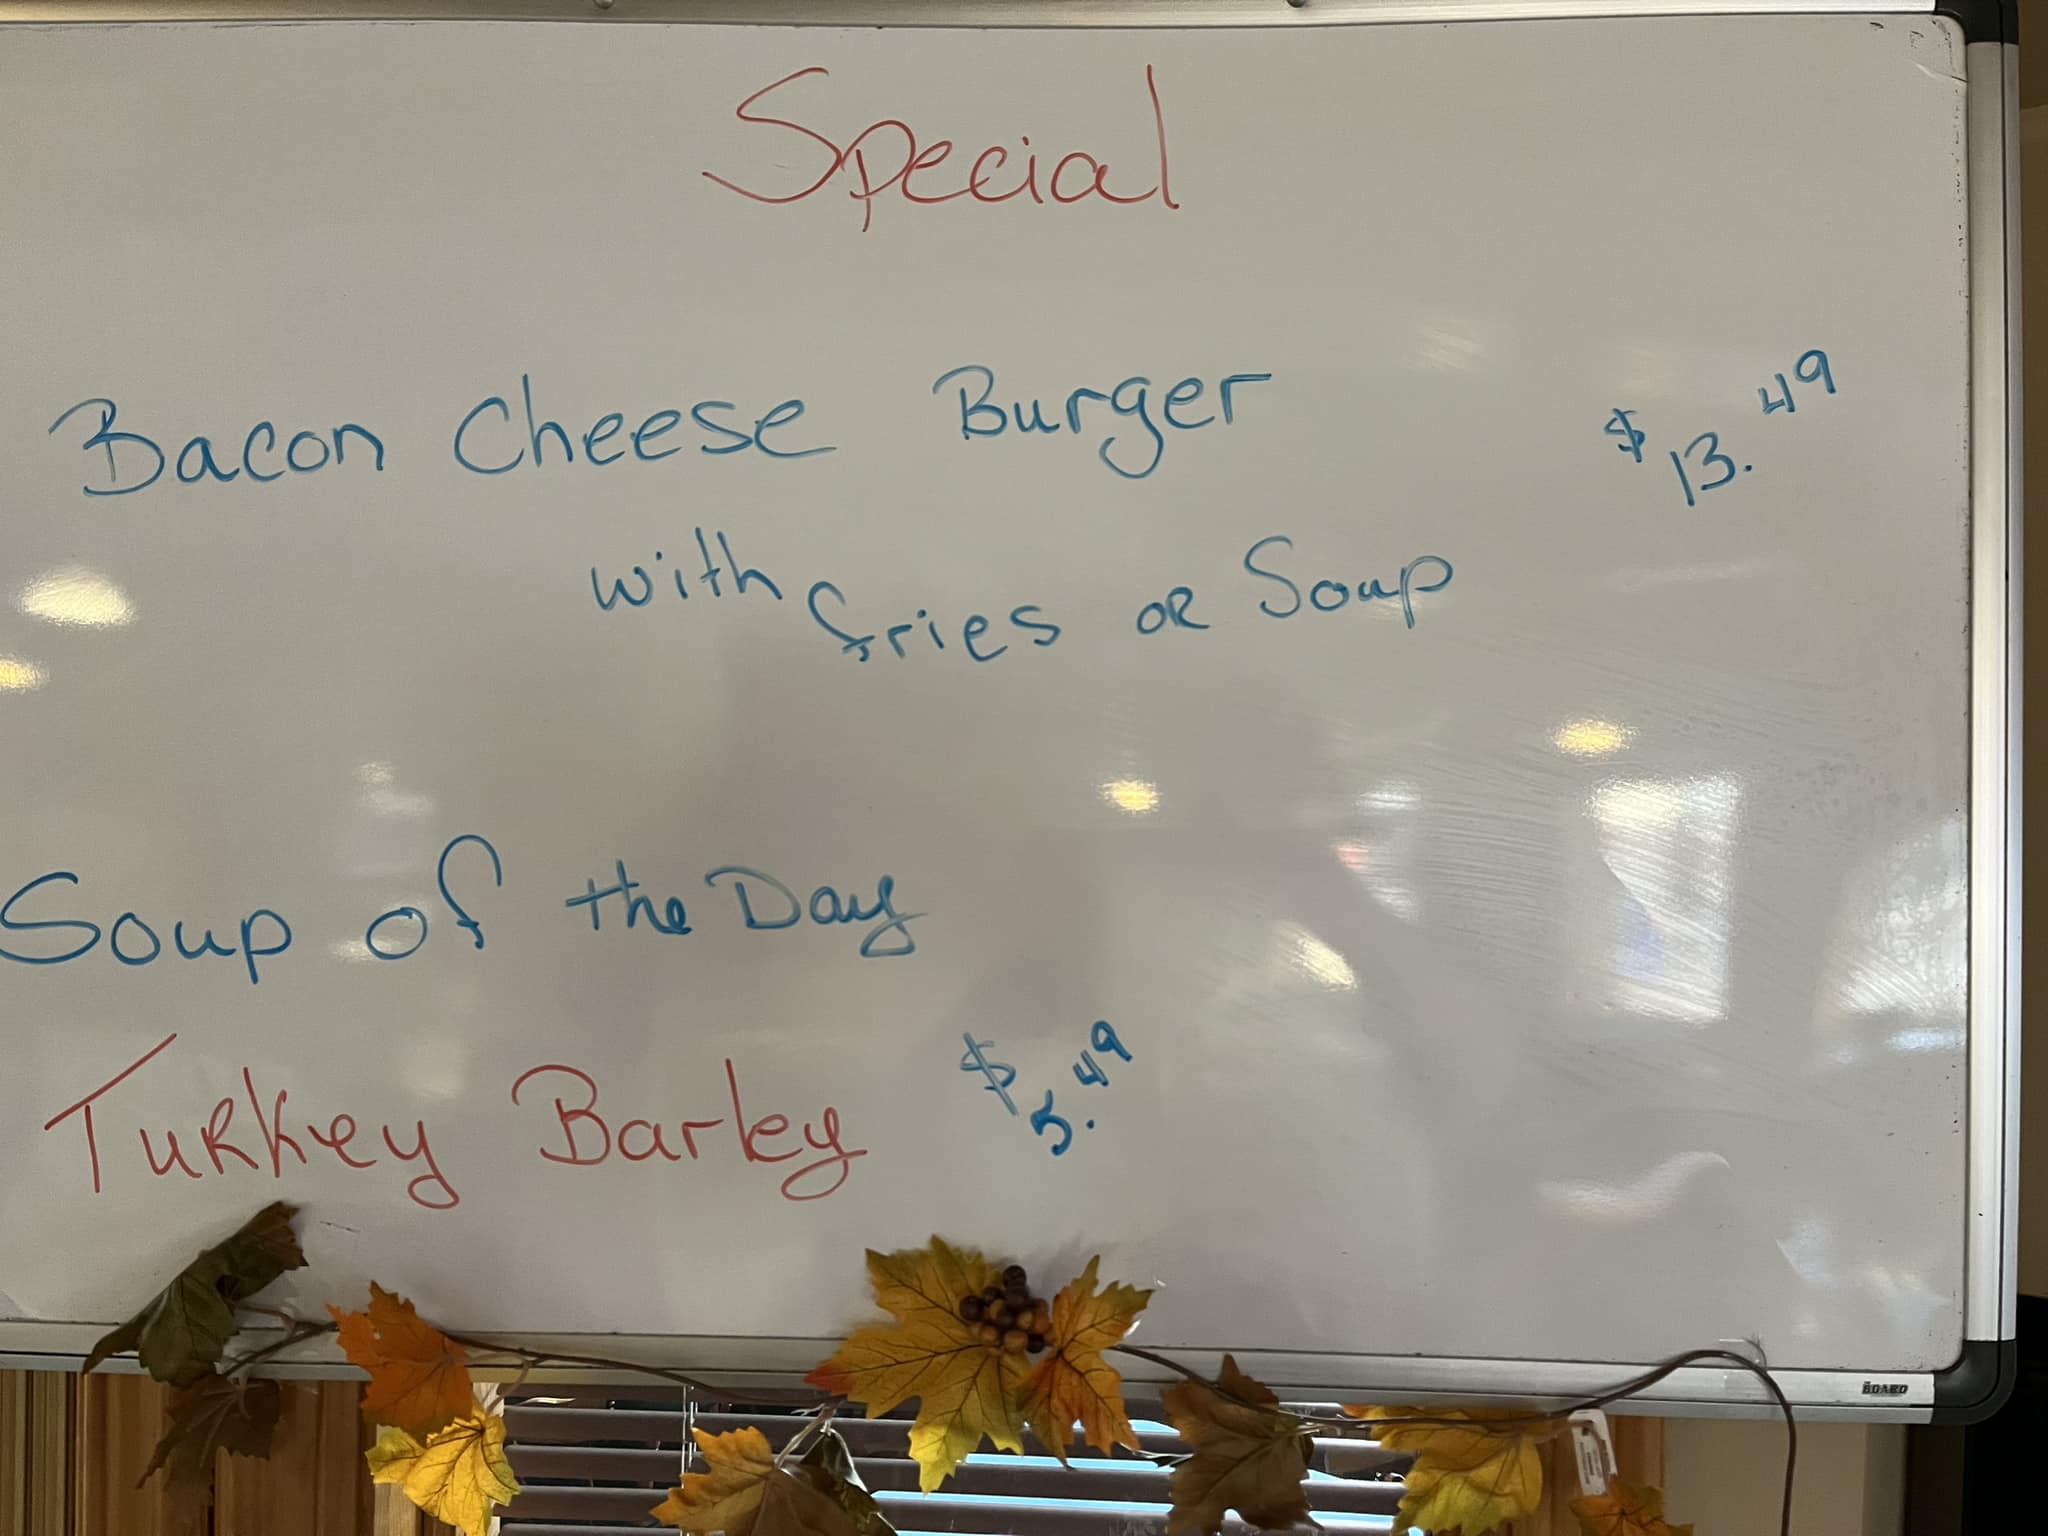 Special
Bacon Cheese Burger $13.49
with fries OR Soup
Soup of the Day
Turkey Barley $5.49
BOARD